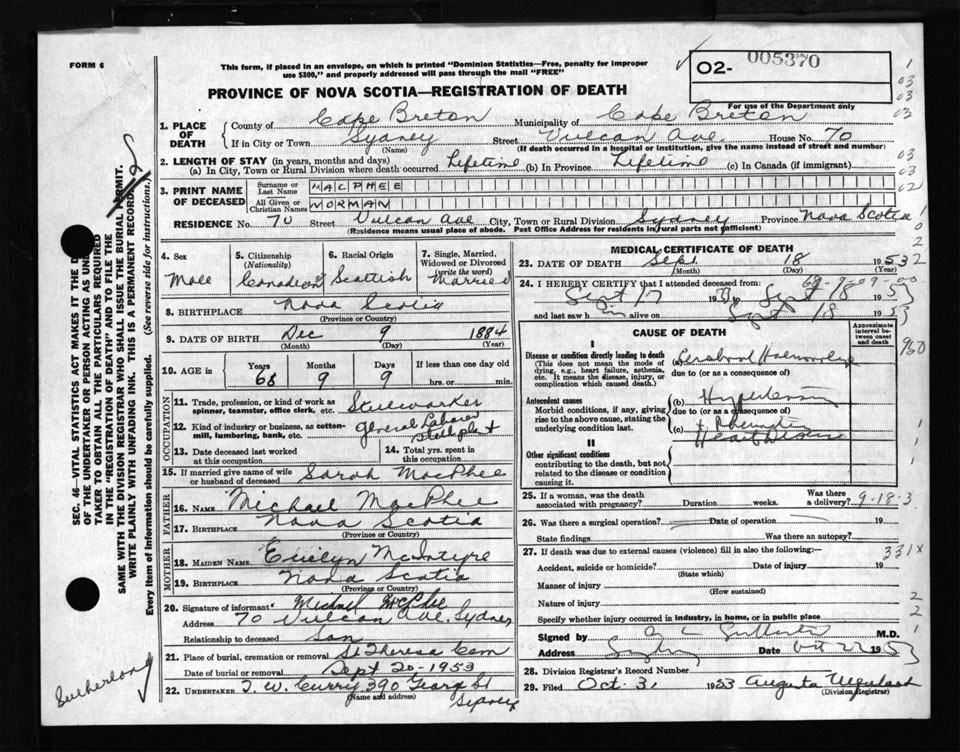 FORM 6
This form, if placed in an envelope, on which is printed "Dominion Statistics—Free, penalty for improper
use $300," and properly addressed will pass through the mail "FREE"
O2- 005370
For use of the Department only
PROVINCE OF NOVA SCOTIA—REGISTRATION OF DEATH
1. PLACE OF DEATH
County of Cape Breton Municipality of Cape Breton
If in City or Town Sydney (Name) Street Vulcan Ave. House No. 70
(If death occurred in a hospital or institution, give the name instead of street and number)
2. LENGTH OF STAY (in years, months and days)
(a) In City, Town or Rural Division where death occurred Lifetime (b) In Province Lifetime (c) In Canada (if immigrant)
3. PRINT NAME OF DECEASED
Surname or Last Name MACPHEE
All Given or Christian Names NORMAN
RESIDENCE No. 70 Street Vulcan Ave City, Town or Rural Division Sydney Province Nova Scotia
(Residence means usual place of abode. Post Office Address for residents in rural parts not sufficient)
4. Sex
Male
5. Citizenship (Nationality)
Canadian
6. Racial Origin
Scottish
7. Single, Married, Widowed or Divorced (write the word)
Married
8. BIRTHPLACE Nova Scotia
(Province or Country)
9. DATE OF BIRTH Dec 9 1884
(Month) (Day) (Year)
10. AGE in Years 68 Months 9 Days 9 If less than one day
hrs. or min.
OCCUPATION
11. Trade, profession, or kind of work as spinner, teamster, office clerk, etc. Steelworker
12. Kind of industry or business, as cotton-mill, lumbering, bank, etc. general Laborer
13. Date deceased last worked at this occupation
14. Total yrs. spent in this occupation
15. If married give name of wife or husband of deceased Sarah MacPhee
FATHER
16. NAME Michael MacPhee
17. BIRTHPLACE Nova Scotia
(Province or Country)
MOTHER
18. MAIDEN NAME McIntyre
19. BIRTHPLACE Nova Scotia
(Province or Country)
20. Signature of informant Michael McPhee
Address 70 Vulcan Ave, Sydney
Relationship to deceased Son
21. Place of burial, cremation or removal St Theresa Cem
Date of burial or removal Sept 20-1953
22. UNDERTAKER T. W. Curry 390 George St
(Name and address) Sydney
MEDICAL CERTIFICATE OF DEATH
23. DATE OF DEATH Sept. 18 1953
(Month) (Day) (Year)
24. I HEREBY CERTIFY that I attended deceased from
Sept 17 1953 to Sept 18 1953
and last saw h alive on Sept 18 1953
CAUSE OF DEATH
Approximate interval between cause and death
I
Disease or condition directly leading to death
(This does not mean the mode of dying, e.g., heart failure, asthenia, etc. It means the disease, injury, or complication which caused death.)
Cerebral Haemorrhage
due to (or as a consequence of)
Antecedent causes
Morbid conditions, if any, giving rise to the above cause, stating the underlying condition last.
(b) Hypertension
due to (or as a consequence of)
(c) Rheumatic
Heart Disease
II
Other significant conditions
contributing to the death, but not related to the disease or condition causing it.
25. If a woman, was the death associated with pregnancy? Duration weeks. Was there a delivery? 9-18-3
26. Was there a surgical operation? Date of operation 19
State findings Was there an autopsy?
27. If death was due to external causes (violence) fill in also the following:— 331X
Accident, suicide or homicide? Date of injury 19
(State which)
Manner of injury
(How sustained)
Nature of injury
Specify whether injury occurred in industry, in home, or in public place
Signed by M.D.
Address Sydney Date Oct 22 1953
28. Division Registrar's Record Number
29. Filed Oct. 31 1953 Augusta
(Division Registrar)
SEC. 46—VITAL STATISTICS ACT MAKES IT THE
OF THE UNDERTAKER OR PERSON ACTING AS
TAKER TO OBTAIN ALL THE PARTICULARS REQUIRED
IN THE "REGISTRATION OF DEATH" AND TO FILE THE
SAME WITH THE DIVISION REGISTRAR WHO SHALL ISSUE THE BURIAL PERMIT.
WRITE PLAINLY WITH UNFADING INK. THIS IS A PERMANENT RECORD.
Every item of information should be carefully supplied. (See reverse side for instructions.)